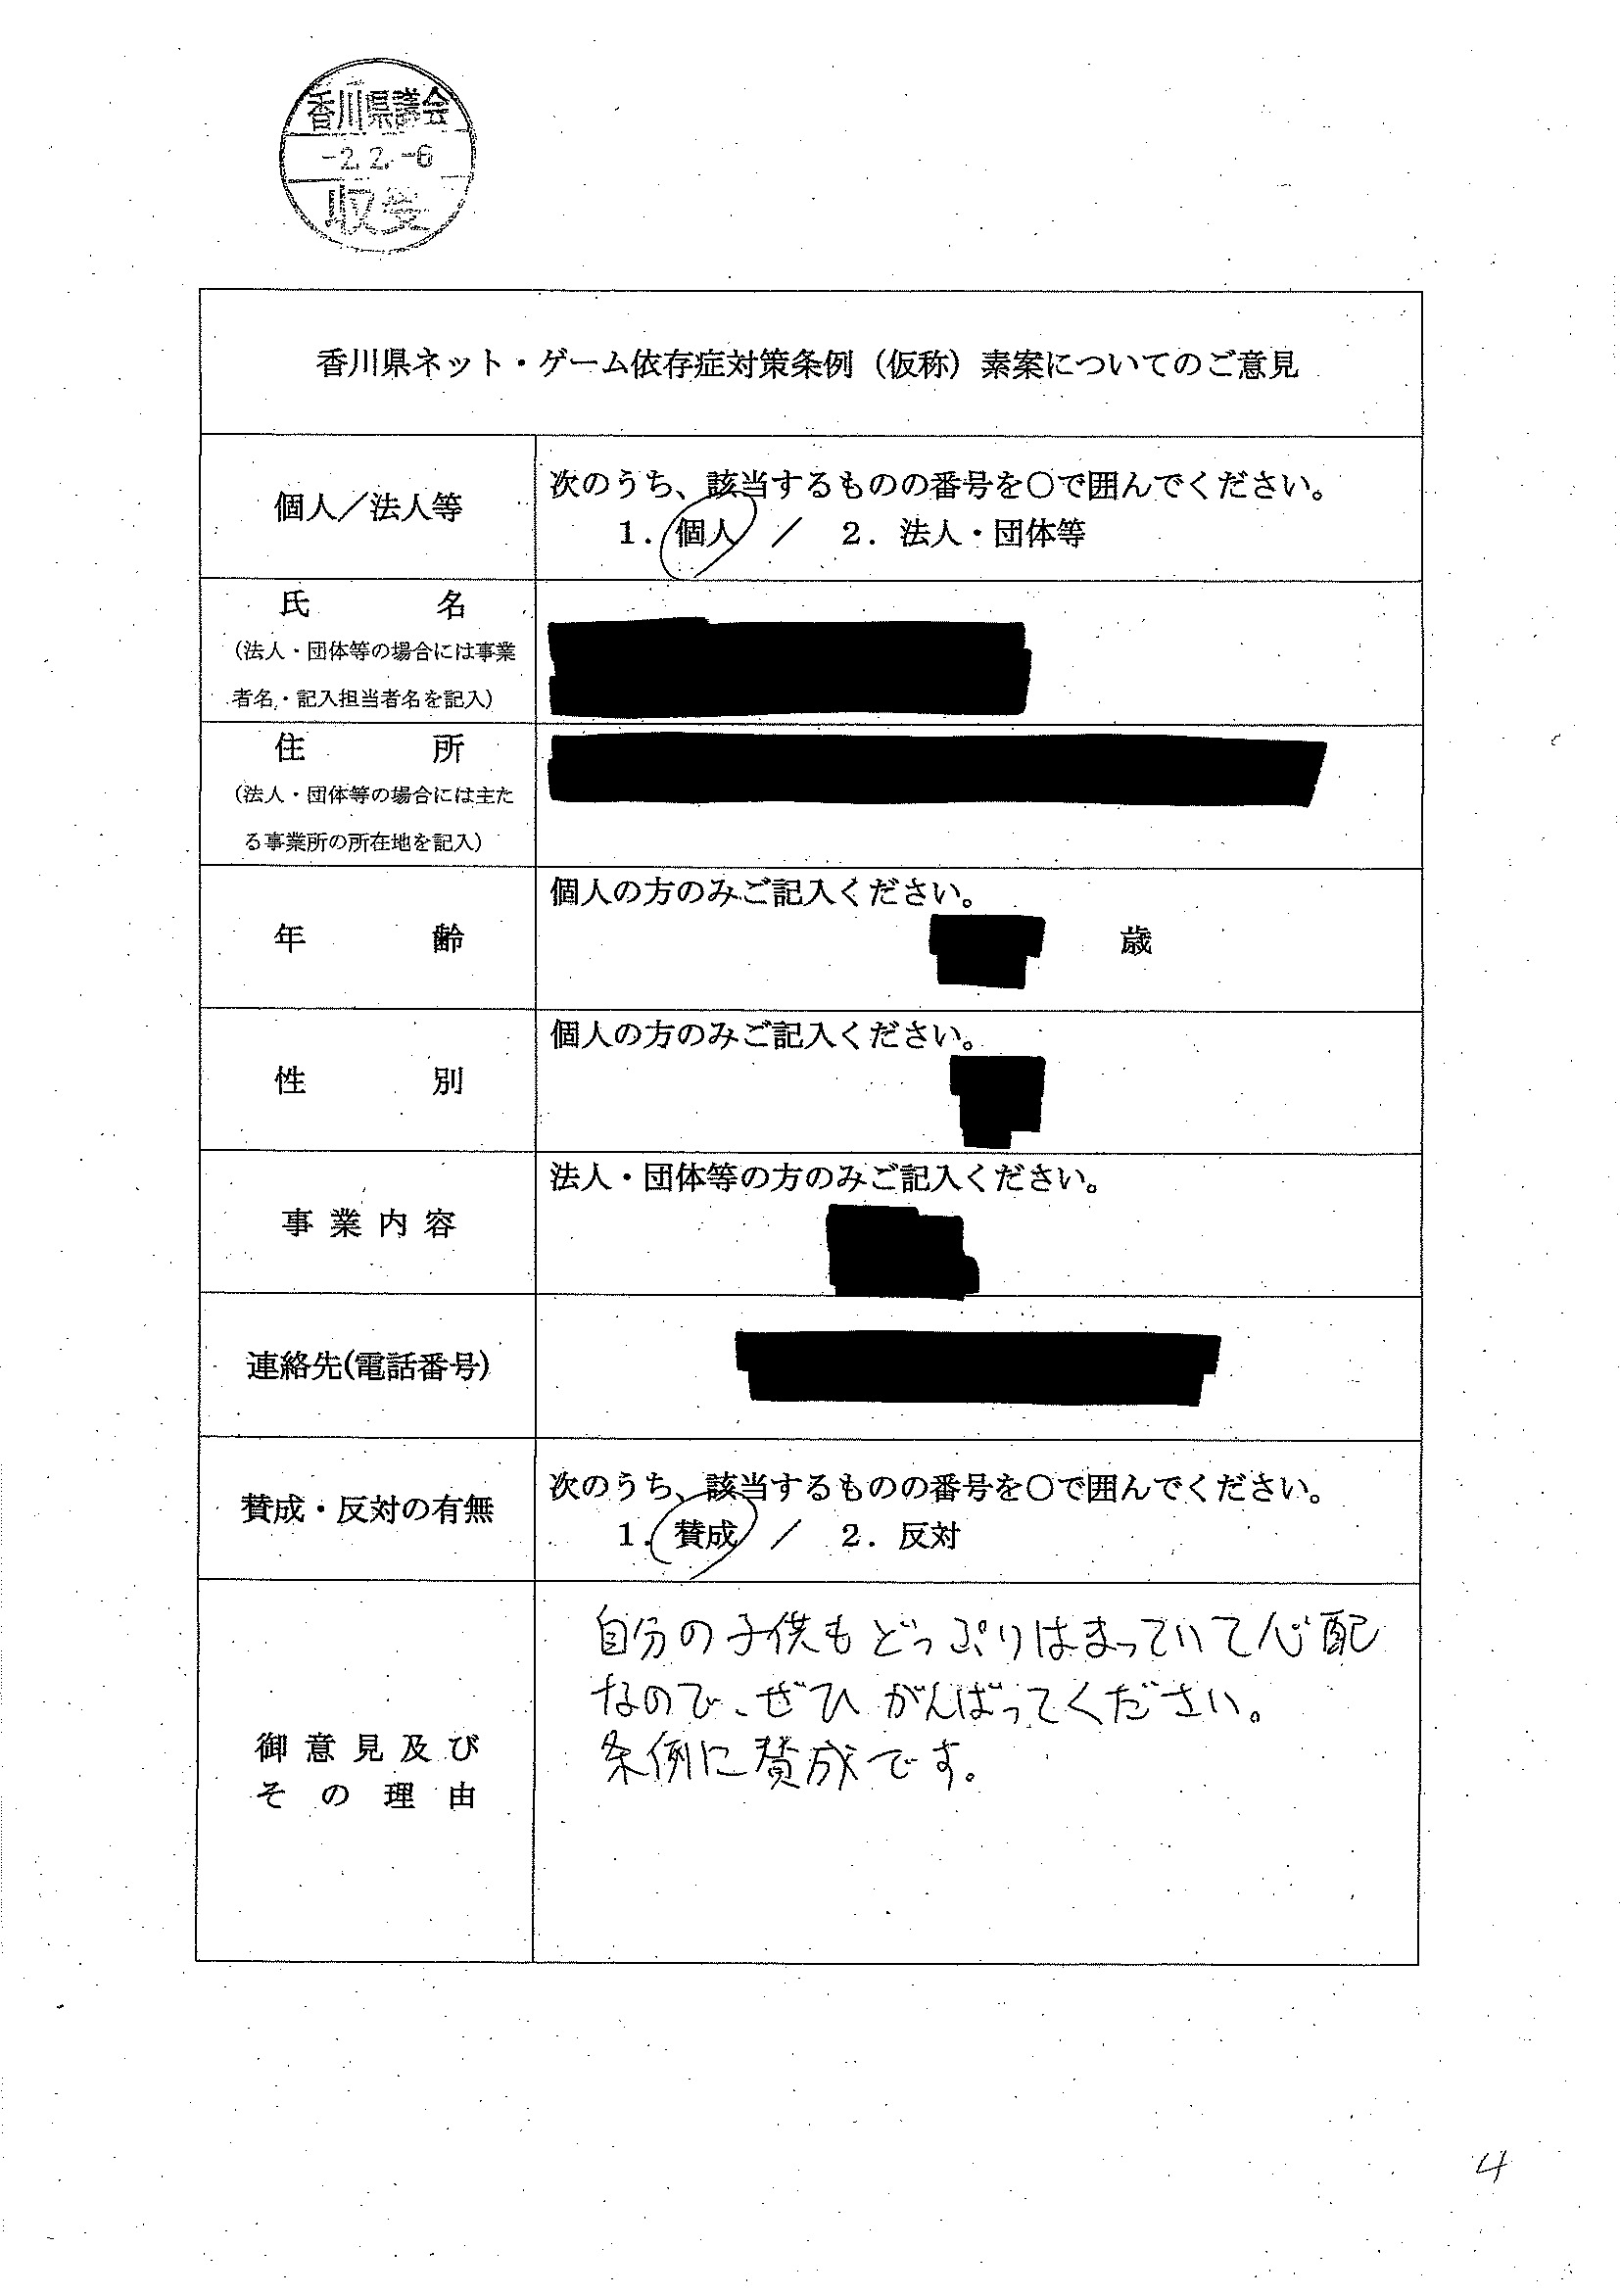 香川県議会
-2.2.-6
収受
香川県ネット・ゲーム依存症対策条例（仮称）素案についてのご意見
個人／法人等
次のうち、該当するものの番号を○で囲んでください。
1．個人 ／ 2．法人・団体等
氏 名
（法人・団体等の場合には事業
者名・記入担当者名を記入）
住 所
（法人・団体等の場合には主た
る事業所の所在地を記入）
年 齢
個人の方のみご記入ください。
歳
性 別
個人の方のみご記入ください。
事業内容
法人・団体等の方のみご記入ください。
連絡先(電話番号)
賛成・反対の有無
次のうち、該当するものの番号を○で囲んでください。
1．賛成 ／ 2．反対
御意見及び
その理由
自分の子供もどっぷりはまっていて心配
なので、ぜひがんばってください。
条例に賛成です。
4